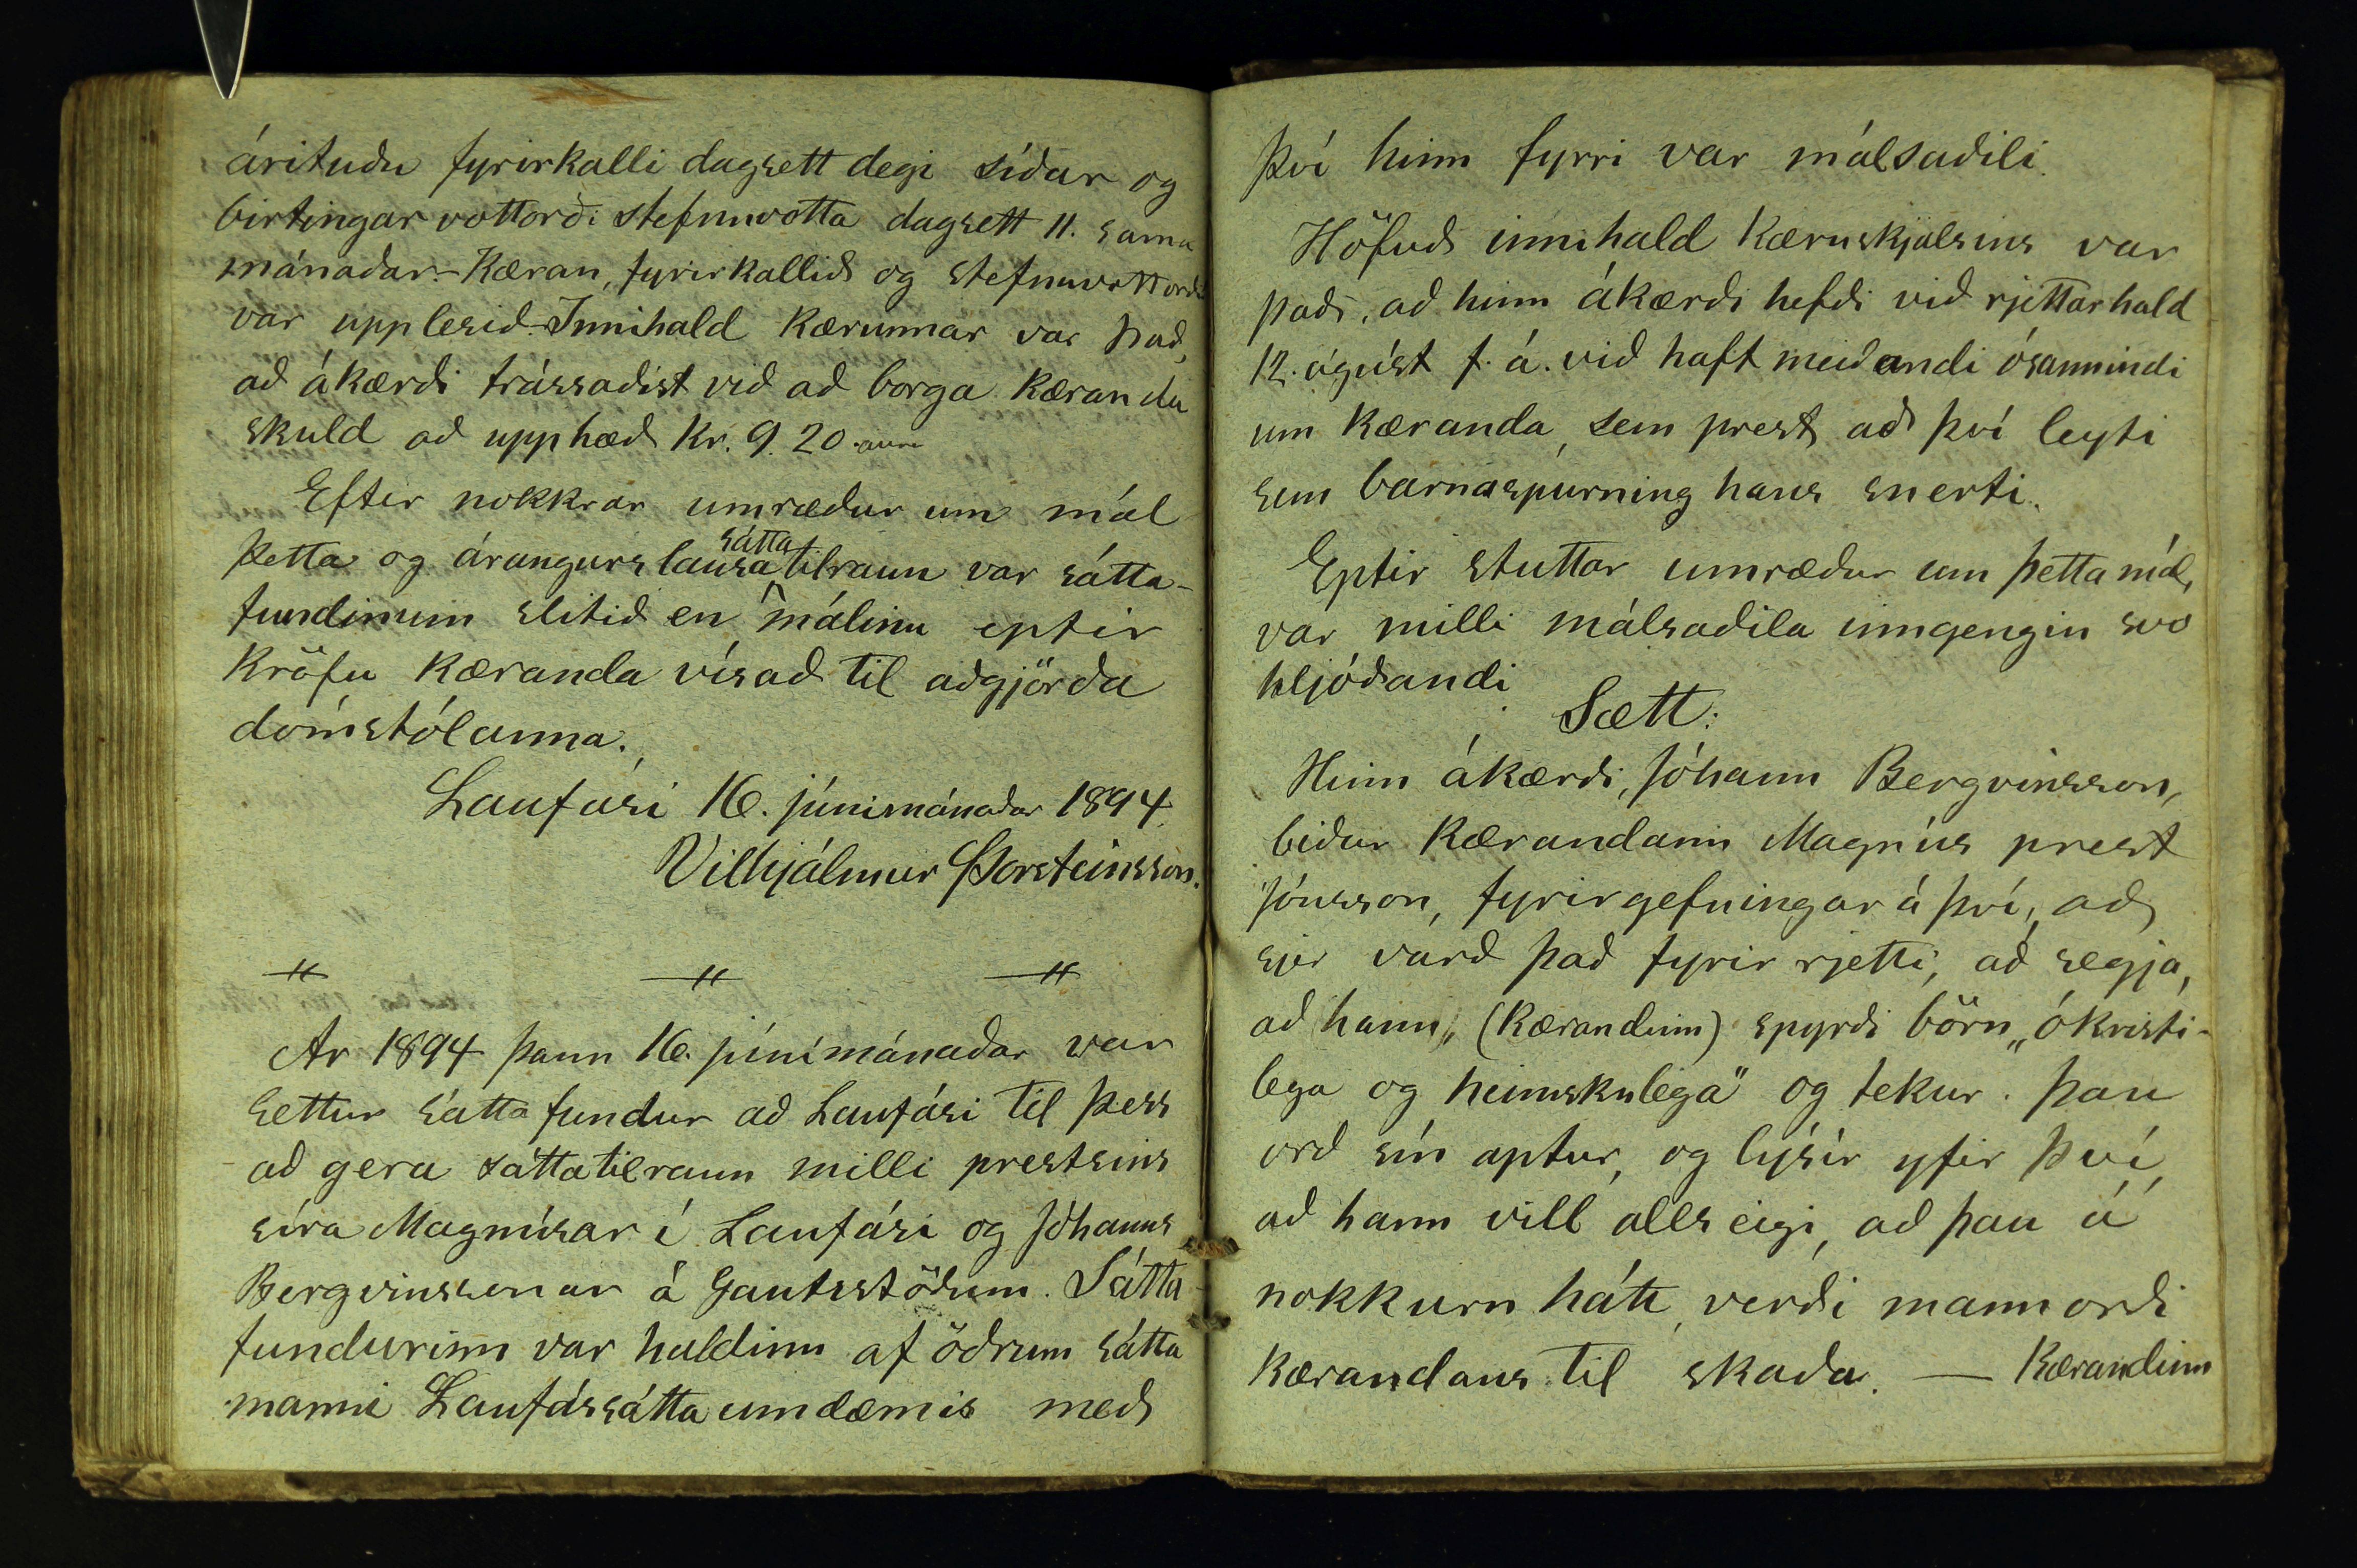 árituðu fyrirkalli dagsett degi síðar og
birtingar vottorði stefnuvotta dagsett 11. sama
mánaðar. - Kæran, fyrirkallið og stefnuvottorð
var upplesið. - Innihald kærunnar var það,
að ákærði trássaðist við að borga kæranda
skuld að upphæð kr. 9. 20 aura
Eftir nokkrar umræður um mál
þetta og árangurslausa sáttatilraun var sátta-
fundinum slitið en málinu eptir
kröfu kæranda vísað til aðgjörða
dómstólanna.
Laufási 16. júnimánaðar 1894
Vilhjálmur Þorsteinsson.
Ár 1894 þann 16. júnímánaðar var
settur sátta fundur að Laufási til þess
að gera sáttatilraun milli prestsins
síra Magnúsar í Laufási og Jóhanns
Bergvinssonar á Gautsstöðum. Sátta
fundurinn var haldinn af öðrum sátta
manni Laufássátta umdæmis með
því hinn fyrri var málsaðili.
Höfuð innihald kæruskjalsins var
það, að hinn ákærði hefði við rjettarhald
12. ágúst f. á. við haft meiðandi ósannindi
um kæranda, sem prest að því leyti
sem barnaspurning hans snerti.
Eptir stuttar umræður um þetta mál,
var milli málsaðila inngengin svo
hljóðandi
Sætt:
Hinn ákærði, Jóhann Bergvinsson,
biður kærandann Magnús prest
Jónsson, fyrirgefningar á því, að
sjer varð það fyrir rjetti, að segja,
að hann, (kærandinn) spyrði börn „ókristi-
lega og heimskulega" og tekur þau
orð sín aptur, og lýsir yfir því,
að hann vill alls eigi, að þau á
nokkurn hátt, verði mannorði
kærandans til skaða. — Kærandinn